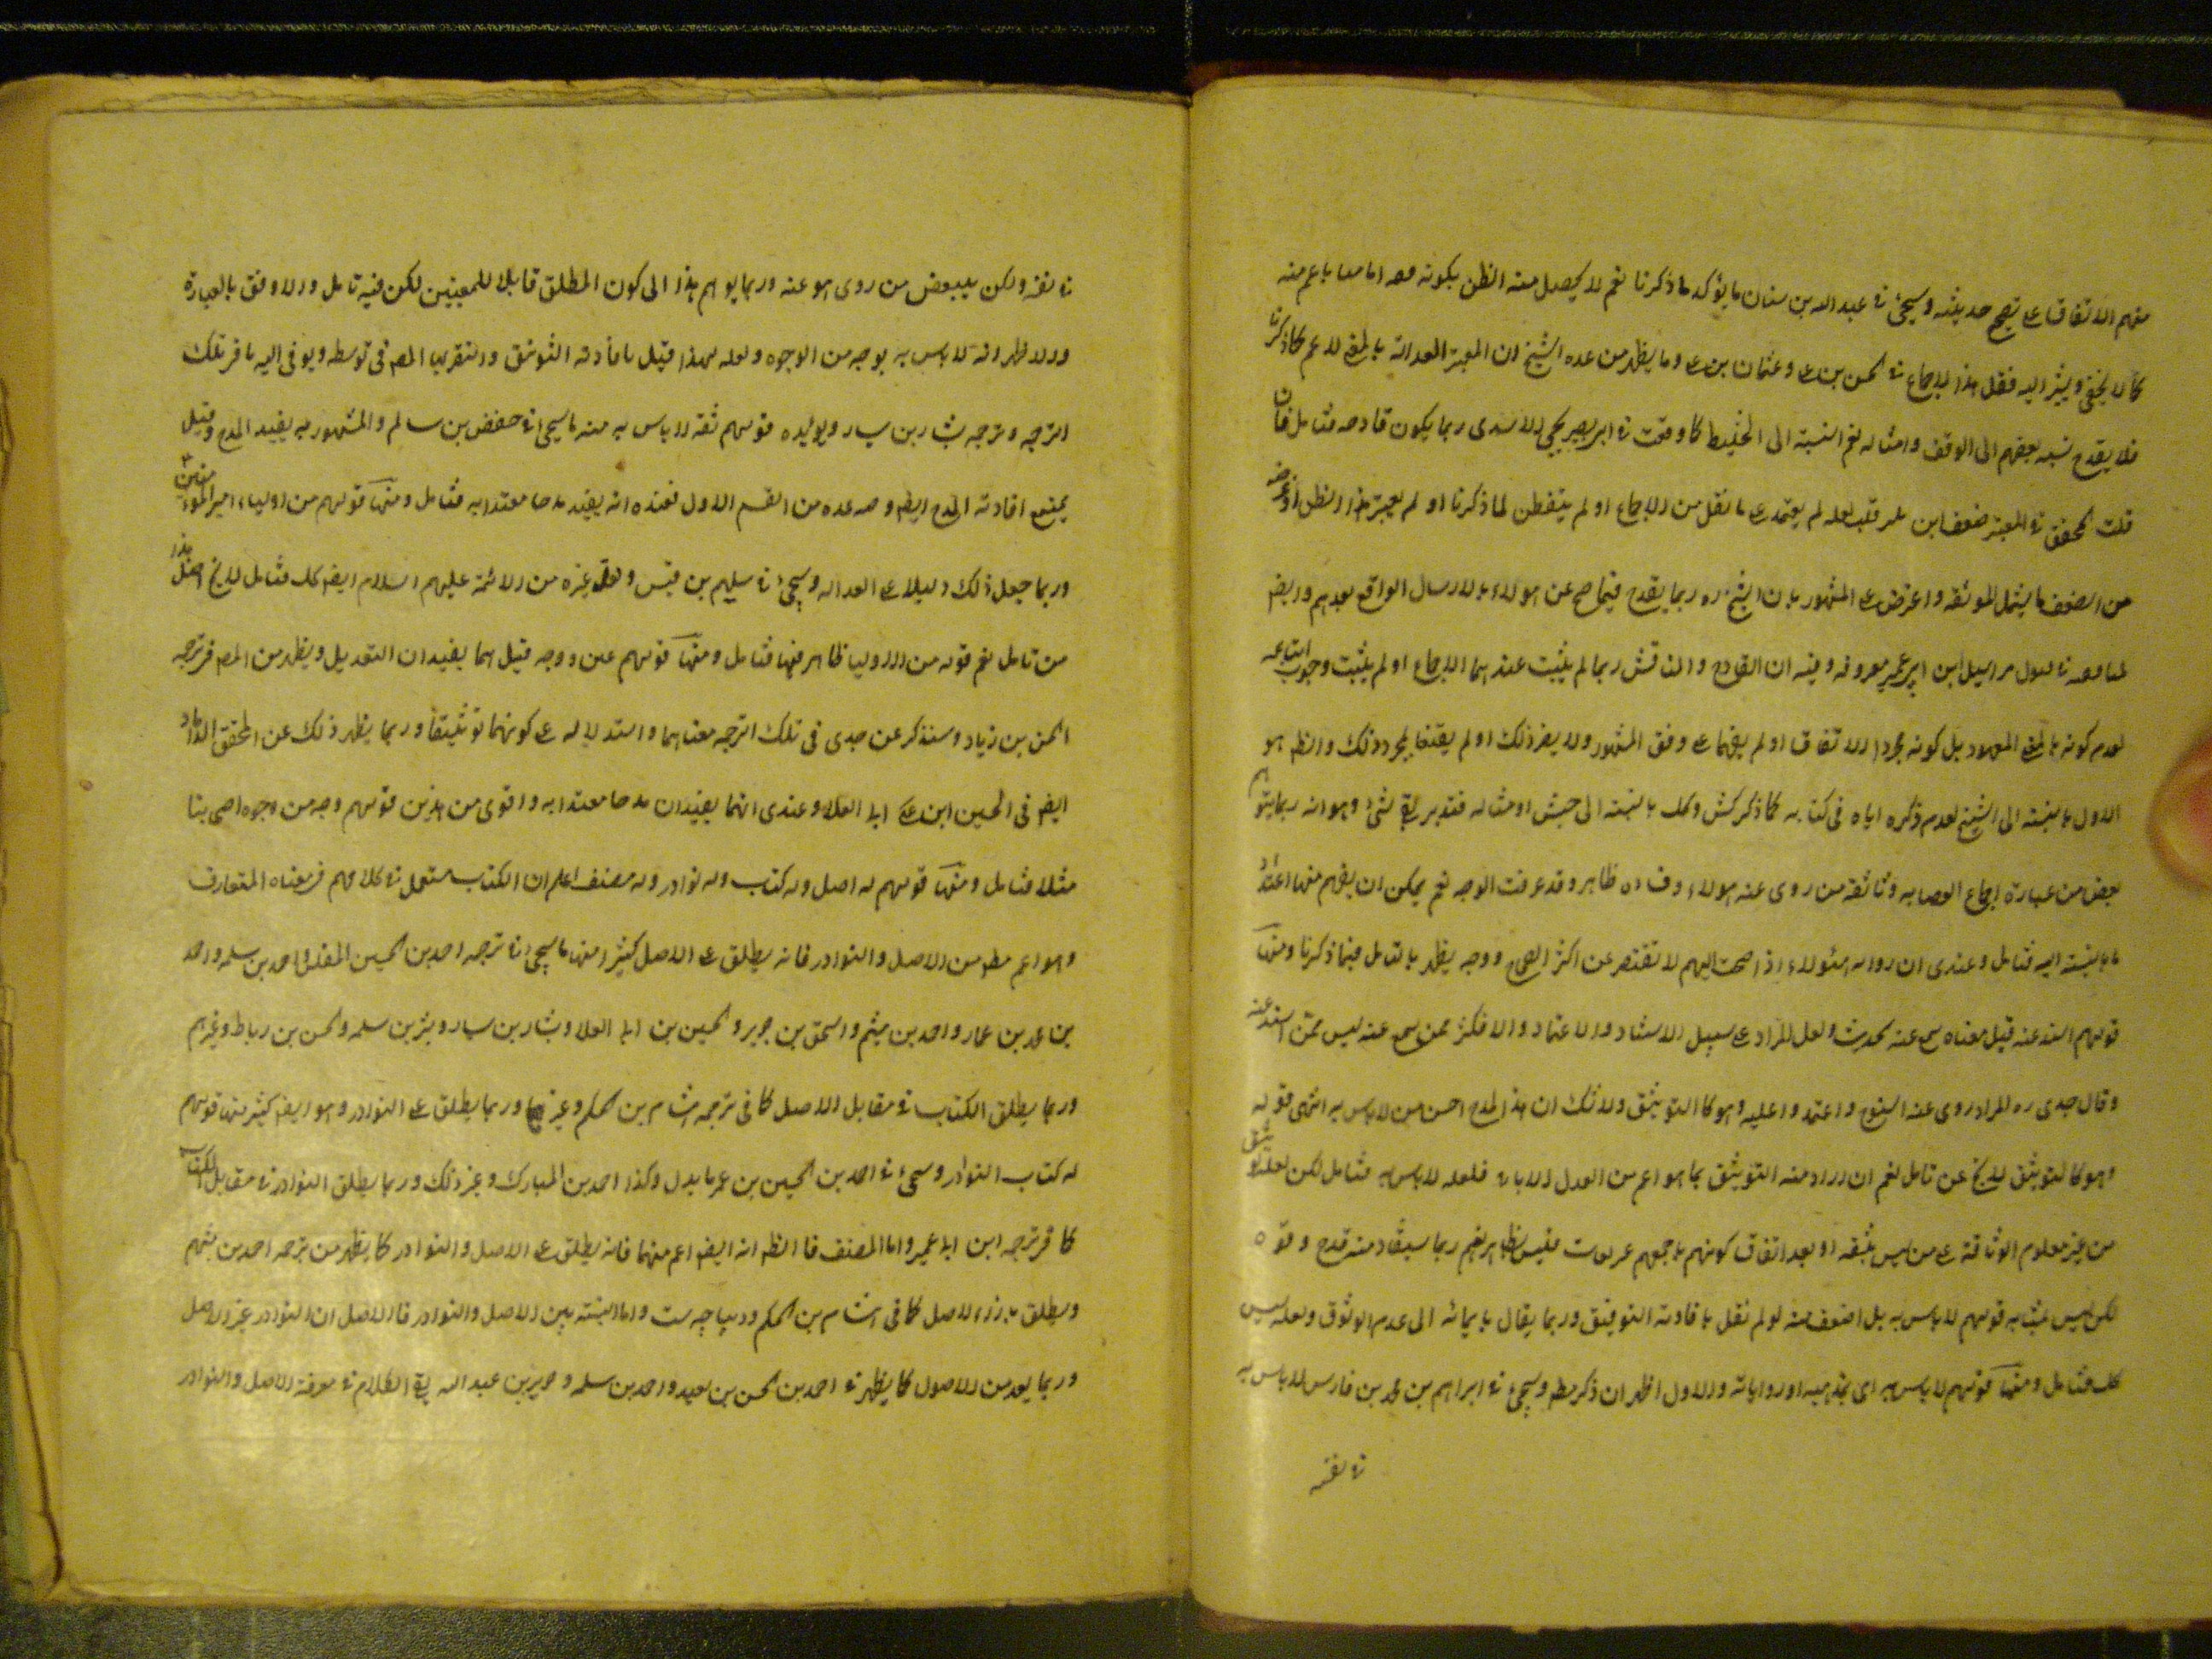 منهم الاتفاق على تصحيح حديثه وسيجئ في عبد الله بن سنان ما يؤكد ما ذكرنا نعم لا يحصل منه الظن بكونه ثقة اماميا بل باعم منه
كما لا يخفى ويشير اليه نقل هذا الاجماع في الحسن بن على وعثمان بن عيسى وما يظهر من عدة الشيخ ان المعتبر العدالة بالمعنى الاعم كما ذكرنا
فلا يقدح نسبة بعضهم الى الوقف وامثاله نعم النسبة الى التخليط كما وقعت في ابى بصير يحيى الاسدى ربما يكون قادحه فتامل فان
قلت المحقق في المعتبر ضعف ابن بكير قلت لعله لم يعتمد على ما نقل من الاجماع او لم يتفطن لما ذكرنا او لم يعتبر هذا الظن او غرضه
من الضعف ما يشمل الموثقة واعترض على المشهور بان الشيخ ره ربما يقدح فيما صح عن هؤلاء بالارسال الواقع بعدهم وايض
المناقشة في قبول مراسيل ابن ابى عمير معروفة وفيه ان القادح والمناقش ربما لم يثبت عندهما الاجماع او لم يثبت وجوب اتباعه
لعدم كونه بالمعنى المعهود بل كونه مجرد الاتفاق او لم يفهما على وفق المشهور ولا يضر ذلك او لم يقنعا بمجرد ذلك والظ هو
الاول بالنسبة الى الشيخ لعدم ذكره اياه في كتابه كما ذكر كش وكك بالنسبة الى جش وامثاله فتدبر بقى شئ وهو انه ربما يتوهم
بعض من عبارة اجماع العصابه وثاقة من روى عنه هؤلاء وفساده ظاهر وقد عرفت الوجه نعم يمكن ان يفهم منها اعتداد
ما بالنسبة اليه فتامل وعندى ان رواية هؤلاء اذا صحت اليهم لا تقتصر عن اكثر الصحاح ووجه يظهر بالتامل فيما ذكرنا ومنها
قولهم اسند عنه قيل معناه سمع عنه الحديث ولعل المراد على سبيل الاستناد والاعتماد والا فكثير ممن سمع عنه ليس ممن اسند عنه
وقال جدى ره المراد روى عنه الشيوخ واعتمدوا عليه وهو كالتوثيق ولا شك ان هذا المدح احسن من لا باس به انتهى قوله
وهو كالتوثيق لا يخ عن تامل نعم ان اراد منه التوثيق بما هو اعم من العدل الامامى فلعله لا باس به فتامل لكن لعله توثيق
من غير معلوم الوثاقة على من ليس بثقة او بعد اتفاق كونهم باجمعهم غير ثقات فليس بظاهر نعم ربما يستفاد منه مدح وقوة
لكن ليس بمثابة قولهم لا باس به بل اضعف منه لو لم نقل بافادته التوثيق وربما يقال بايمائه الى عدم الوثوق ولعله ليس
كك فتامل ومنها قولهم لا باس به اى بمذهبه او رواياته والاول اظهر ان ذكر مطلقا وسيجئ في ابراهيم بن محمد بن فارس لا باس به
في نفسه
في نفسه ولكن ببعض من روى هو عنه وربما يوهم هذا الى كون المطلق قابلا للمعنيين لكن فيه تامل والاوفق بالعبارة
والاظهر انه لا باس به بوجه من الوجوه ولعله لهذا قيل بافادته التوثيق واستقربه المصنف في توسطه ويؤمى اليه ما في تلك
الترجمة وترجمة بشار بن يسار ويؤيده قولهم ثقة لا باس به منه ما سيجئ في حفص بن سالم والمشهور انه يفيد المدح وقيل
بمنع افادته المدح ايض وصه عده من القسم الاول فعنده انه يفيد مدحا معتدا به فتامل ومنها قولهم من اولياء امير المؤمنين
وربما جعل ذلك دليلا على العدالة وسيجئ في سليم بن قيس ولعل غيره من الائمة عليهم السلام ايض كك فتامل لا يخ اصل هذا
من تامل نعم قوله من الاولياء ظاهر فيها فتامل ومنها قولهم عين ووجه قيل هما يفيدان التعديل ويظهر من المصنف في ترجمة
الحسن بن زياد وسنذكر عن جدى في تلك الترجمة معناهما واستدلاله على كونهما توثيقا وربما يظهر ذلك عن المحقق الداماد
ايض في الحسين ابن ابى العلاء وعندى انهما يفيدان مدحا معتدا به واقوى من هذين قولهم وجه من وجوه اصحابنا
مثلا فتامل ومنها قولهم له اصل وله كتاب وله نوادر وله مصنف اعلم ان الكتاب مستعمل في كلامهم في معناه المتعارف
وهو اعم مطلقا من الاصل والنوادر فانه يطلق على الاصل كثيرا منها ما سيجئ في ترجمة احمد بن الحسين المفلس واحمد بن سلمه واحمد
بن محمد بن عمار واحمد بن ميثم واسحق بن جرير والحسين بن ابى العلا وبشار بن يسار وبشر بن سلمه والحسن بن رباط وغيرهم
وربما يطلق الكتاب في مقابل الاصل كما في ترجمة هشام بن الحكم وغيرها وربما يطلق على النوادر وهو ايض كثير منها قولهم
له كتاب النوادر وسيجئ في احمد بن الحسين بن عمر ما يدل وكذا احمد بن المبارك وغير ذلك وربما يطلق النوادر في مقابل الكتاب
كما في ترجمة ابن ابى عمير واما المصنف فالظ انه ايض اعم منهما فانه يطلق على الاصل والنوادر كما يظهر من ترجمة احمد بن ميثم
ويطلق بازاء الاصل كما في هشام بن الحكم وديباجه ست واما النسبة بين الاصل والنوادر فالاصل ان النوادر غير الاصل
وربما يعد من الاصول كما يظهر في احمد بن الحسن بن سعيد واحمد بن سلمه وحريز بن عبد الله بقى الكلام في معرفة الاصل والنوادر